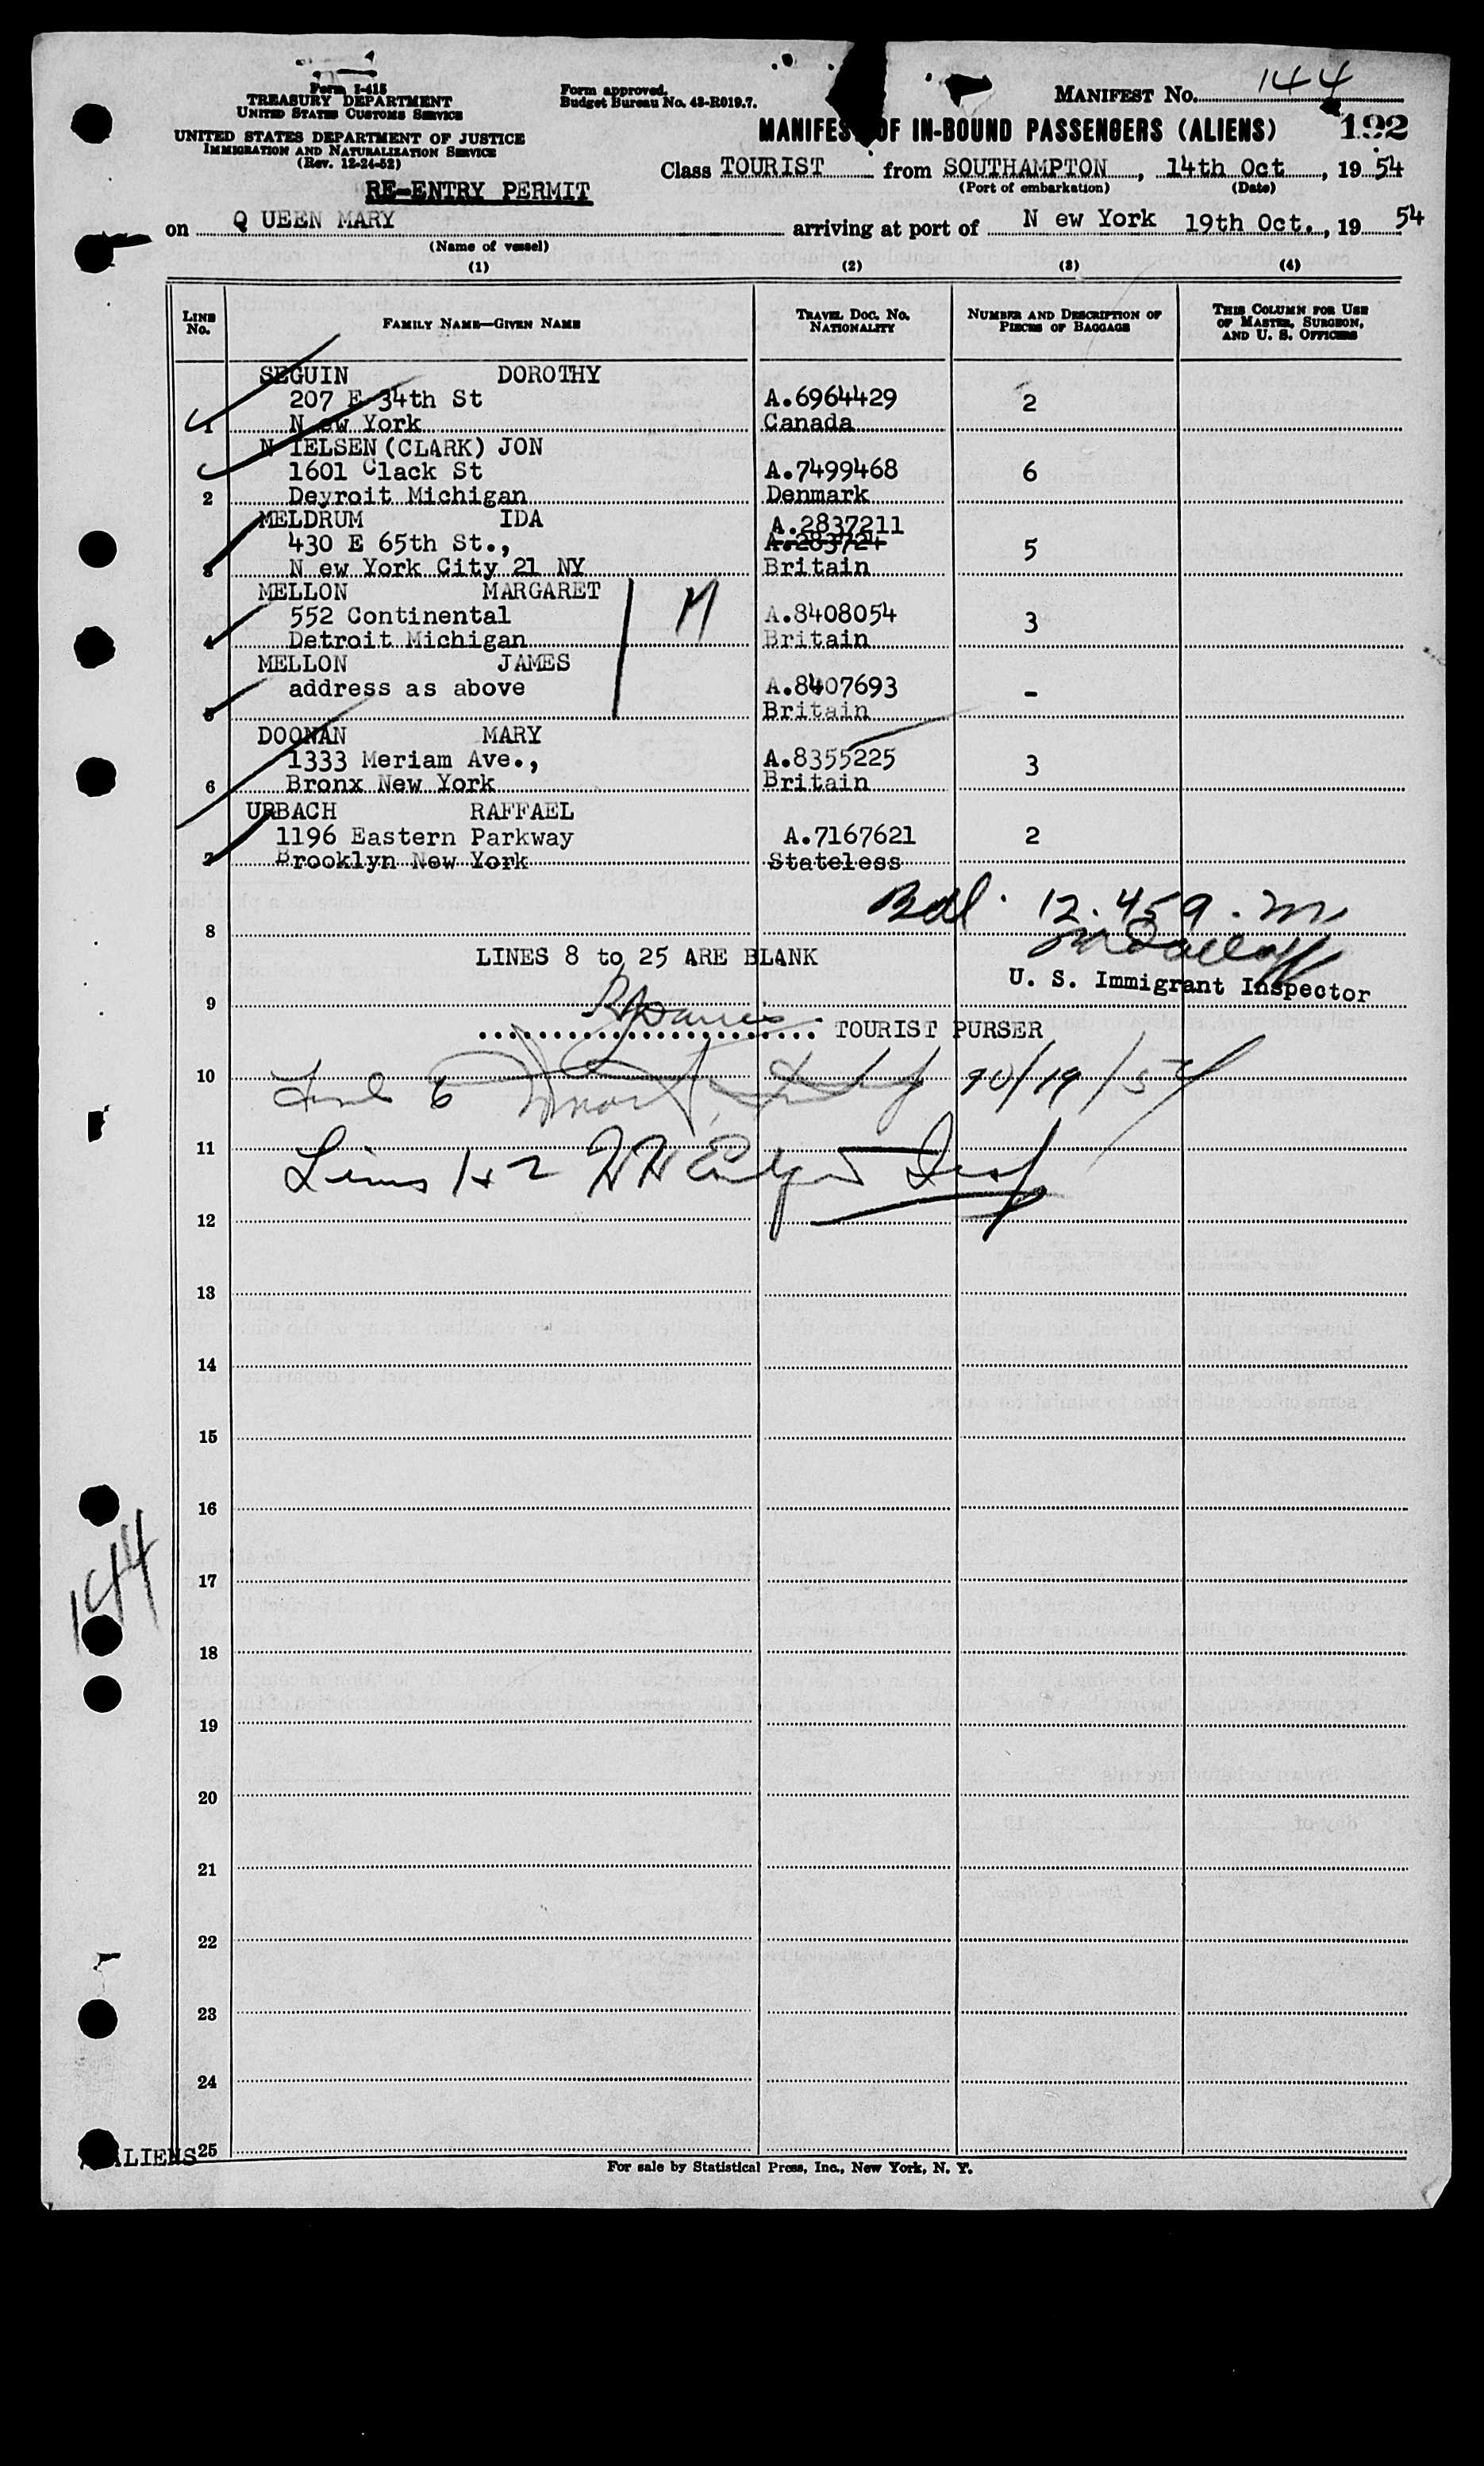 Form I-415
TREASURY DEPARTMENT
UNITED STATES CUSTOMS SERVICE
UNITED STATES DEPARTMENT OF JUSTICE
IMMIGRATION AND NATURALIZATION SERVICE
(Rev. 12-24-52)
RE-ENTRY PERMIT
Form approved.
Budget Bureau No. 43-R019.7.
MANIFEST No. 144
MANIFEST OF IN-BOUND PASSENGERS (ALIENS) 192
Class TOURIST from SOUTHAMPTON, 14th Oct, 1954
(Port of embarkation) (Date)
on Q UEEN MARY arriving at port of N ew York 19th Oct., 19 54
(Name of vessel)
(1) (2) (3) (4)
LINE No. FAMILY NAME—GIVEN NAME TRAVEL DOC. NO. NATIONALITY NUMBER AND DESCRIPTION OF PIECES OF BAGGAGE THIS COLUMN FOR USE OF MASTER, SURGEON, AND U. S. OFFICERS
SEGUIN DOROTHY
207 E 34th St A.6964429 2
1 N ew York Canada
N IELSEN (CLARK) JON
1601 Clack St A.7499468 6
2 Deyroit Michigan Denmark
MELDRUM IDA A.2837211
430 E 65th St., A.283724 5
3 N ew York City 21 NY Britain
MELLON MARGARET M
552 Continental A.8408054 3
4 Detroit Michigan Britain
MELLON JAMES
address as above A.8407693 -
5 Britain
DOONAN MARY
1333 Meriam Ave., A.8355225 3
6 Bronx New York Britain
URBACH RAFFAEL
1196 Eastern Parkway A.7167621 2
7 Brooklyn New York Stateless
Bdl. 12.459.m
8
LINES 8 to 25 ARE BLANK
U. S. Immigrant Inspector
9
TOURIST PURSER
10 6 10/19/54
11
Lines 1+2
12
13
14
15
16
144
17
18
19
20
21
22
23
24
ALIENS 25
For sale by Statistical Press, Inc., New York, N. Y.